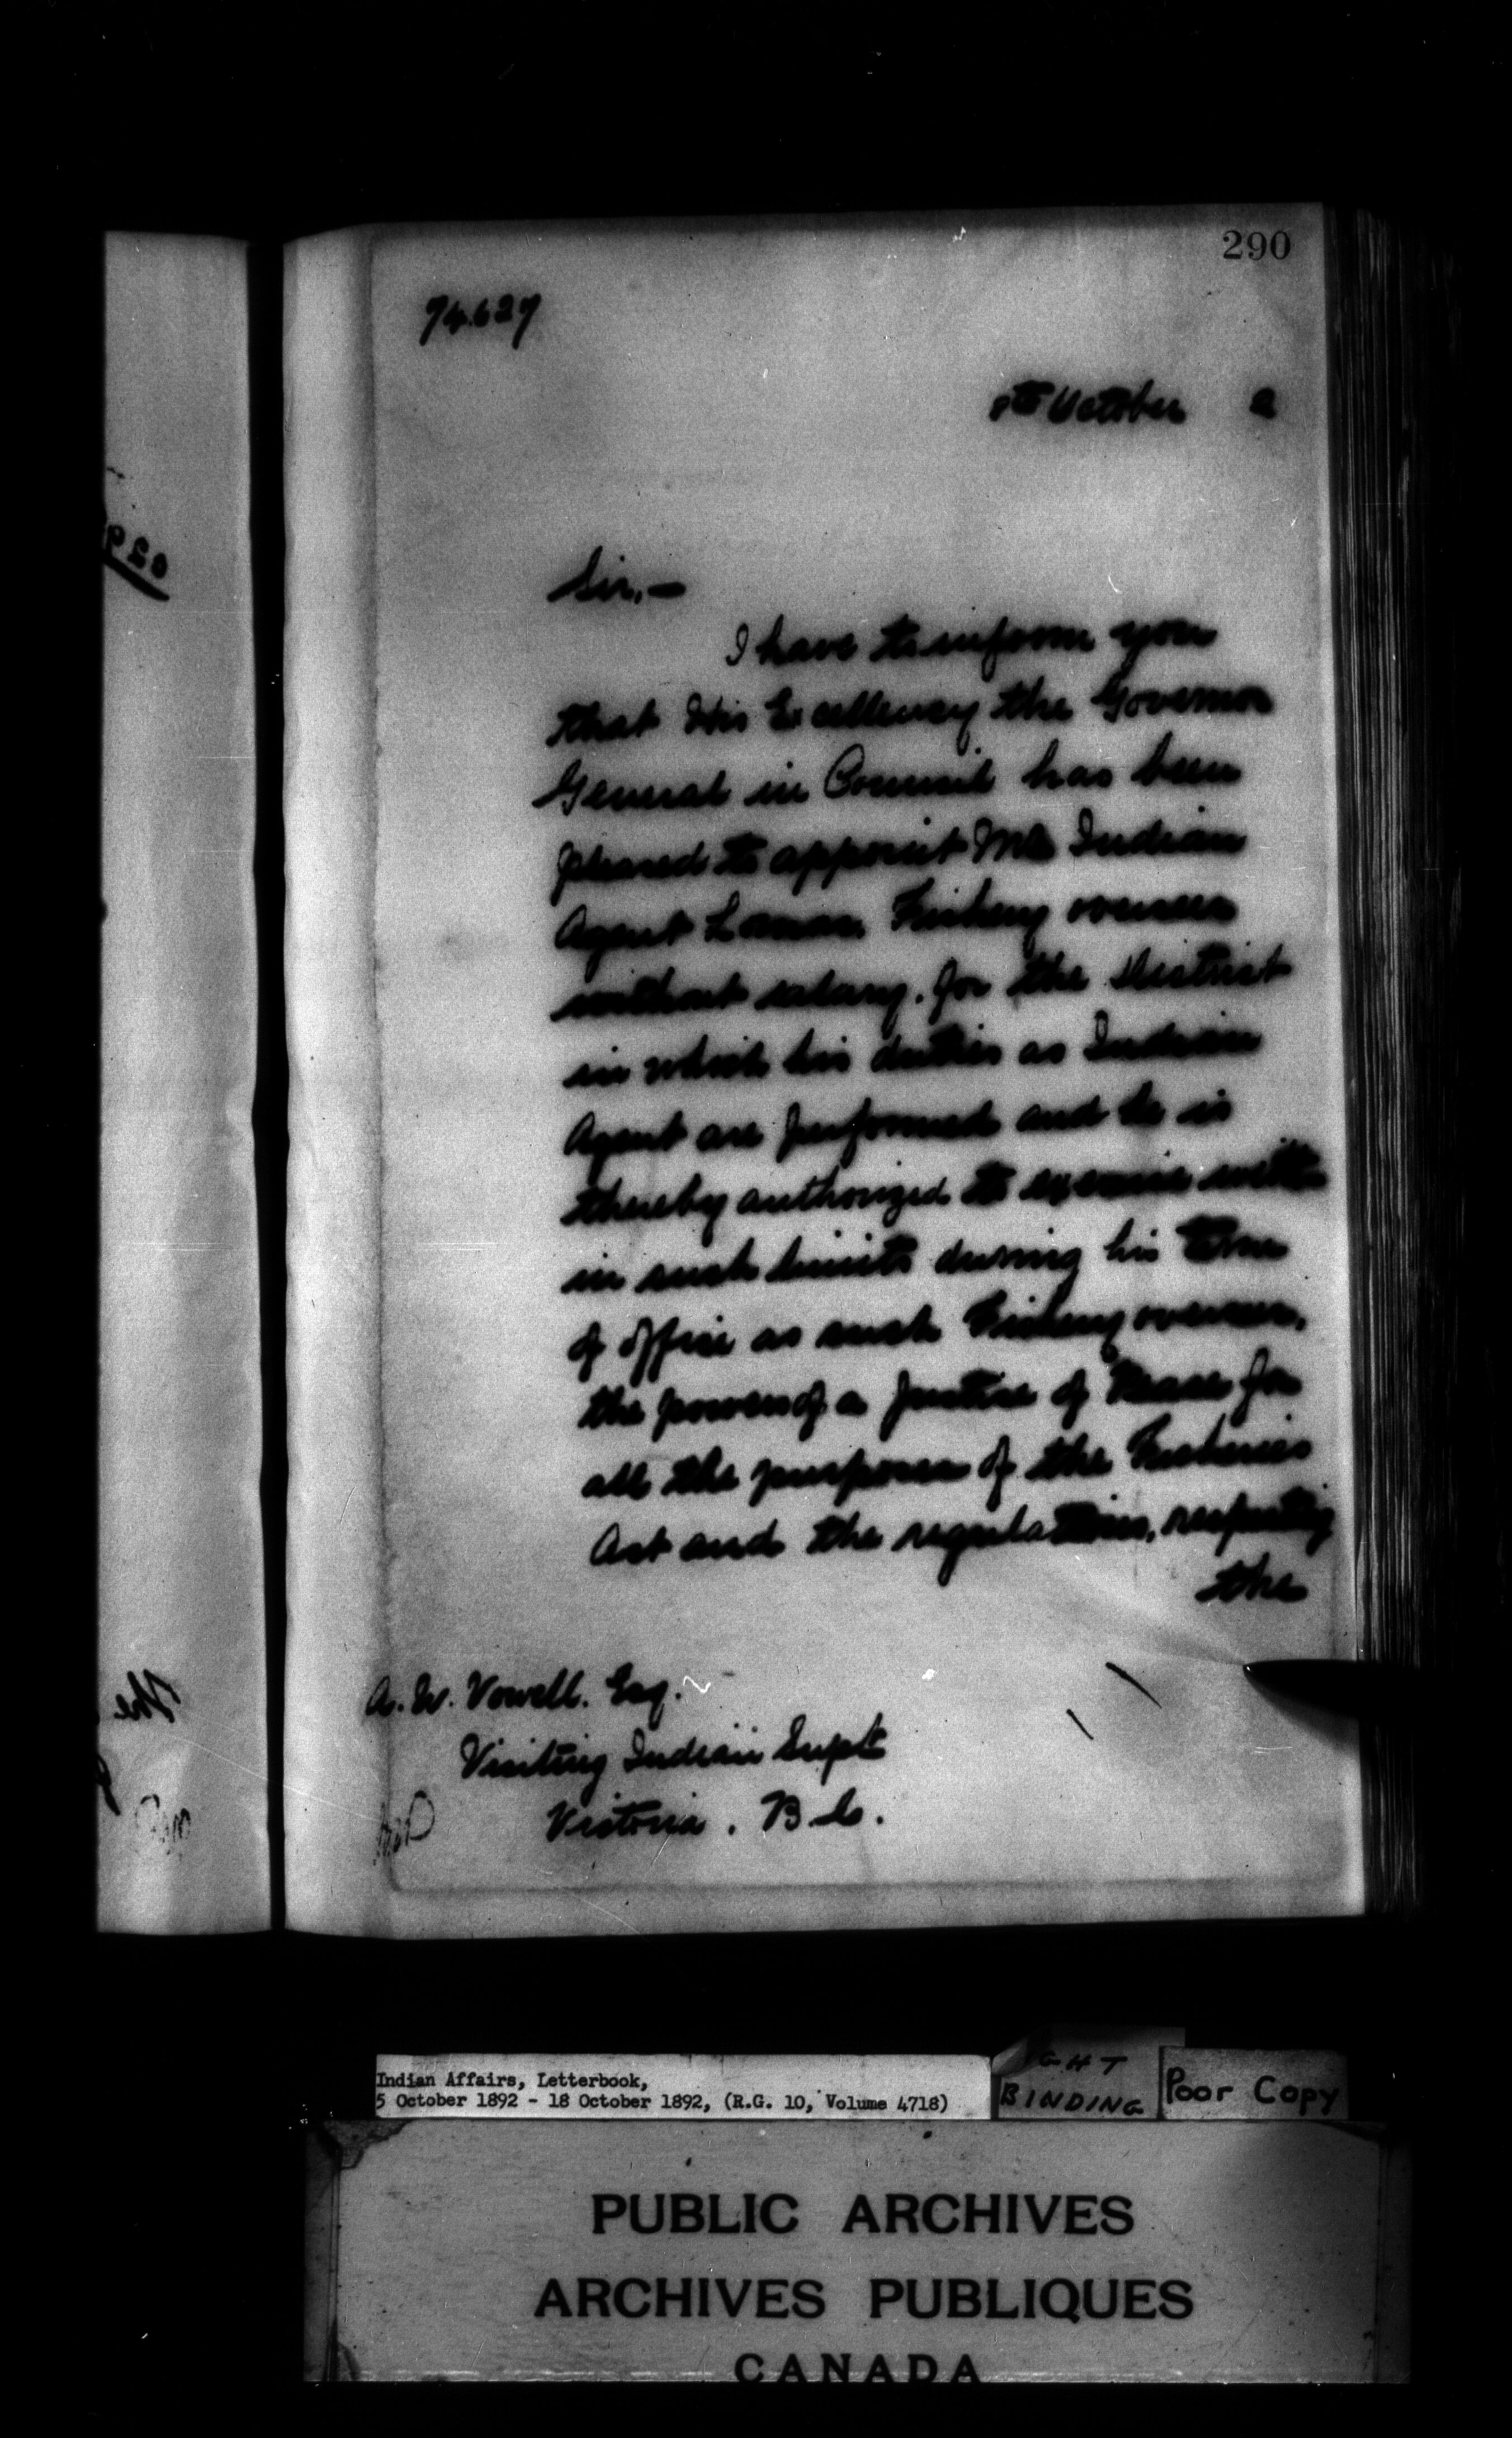 290
74.627
8th October 2
Sir,—
I have to inform you
that His Excellency the Governor
General in Council has been
pleased to appoint Mr Indian
Agent Lomas, Fishery overseer
without salary. for the District
in which his duties as Indian
Agent are performed and he is
thereby authorized to exercise with
in such limits during his term
of office as such Fishery overseer,
the powers of a Justice of Peace for
all the purposes of the Fisheries
Act and the regulations, respecting
the
A. W. Vowell. Esq.
Visiting Indian Supt
Victoria. B.C.
Indian Affairs, Letterbook,
5 October 1892 - 18 October 1892, (R.G. 10, Volume 4718)
BINDING
Poor Copy
PUBLIC ARCHIVES
ARCHIVES PUBLIQUES
CANADA